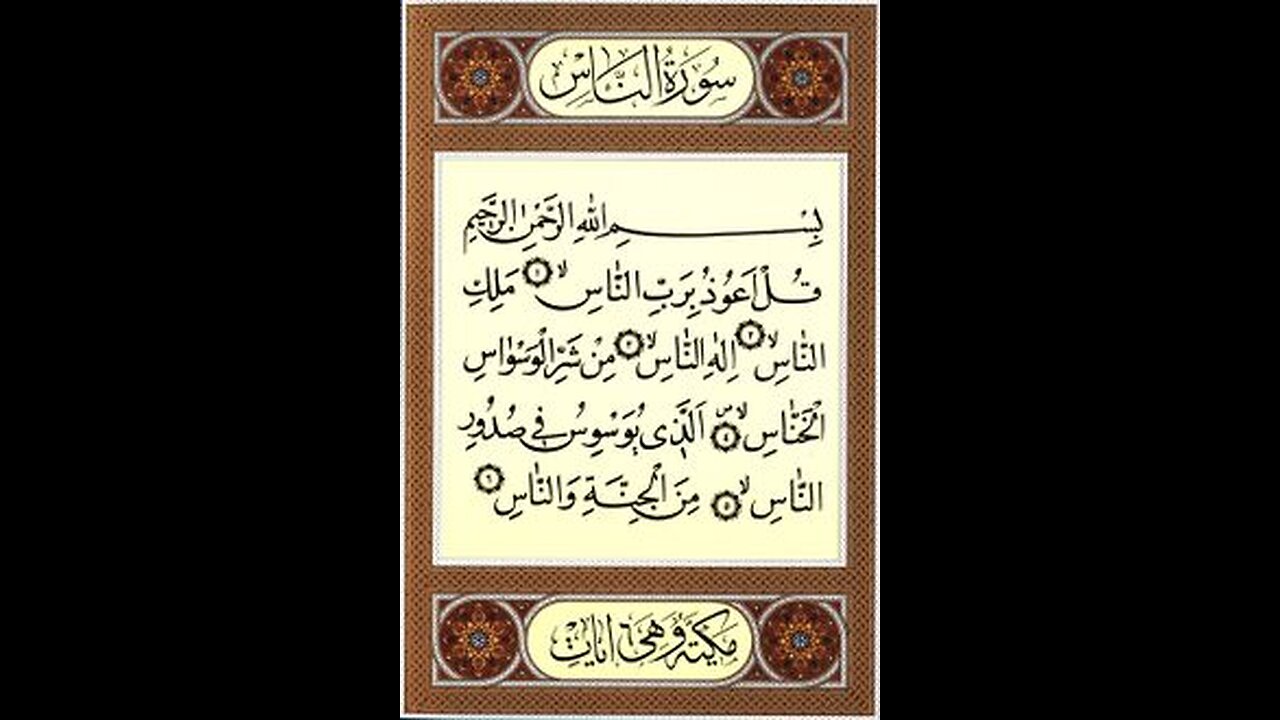 سُورَةُ النَّاسِ
بِسْمِ اللهِ الرَّحْمٰنِ الرَّحِيمِ
قُلْ اَعُوذُ بِرَبِّ النَّاسِۙ ١ مَلِكِ
النَّاسِۙ ٢ اِلٰهِ النَّاسِۙ ٣ مِنْ شَرِّ الْوَسْوَاسِ
الْخَنَّاسِۙ ٤ اَلَّذِى يُوَسْوِسُ فِى صُدُورِ
النَّاسِۙ ٥ مِنَ الْجِنَّةِ وَالنَّاسِ ٦
مَكِّيَّةٌ وَهِىَ ٦ اٰيَاتٍ